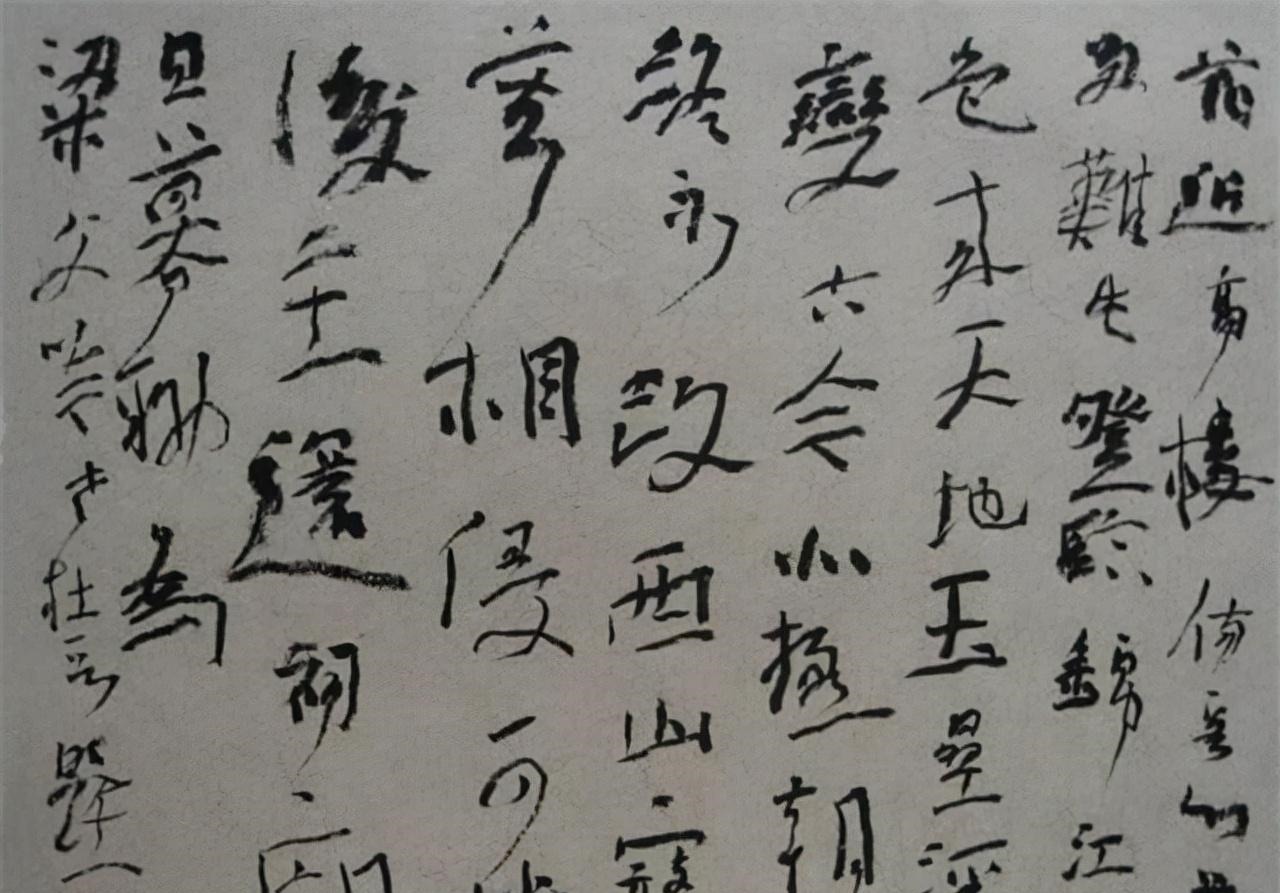 花近高樓傷客心
多難此登臨錦江
色來天地玉壘浮
變古今北極朝
終不改西山寇
莫相侵可
後主還祠廟
日暮聊為
梁父吟 杜